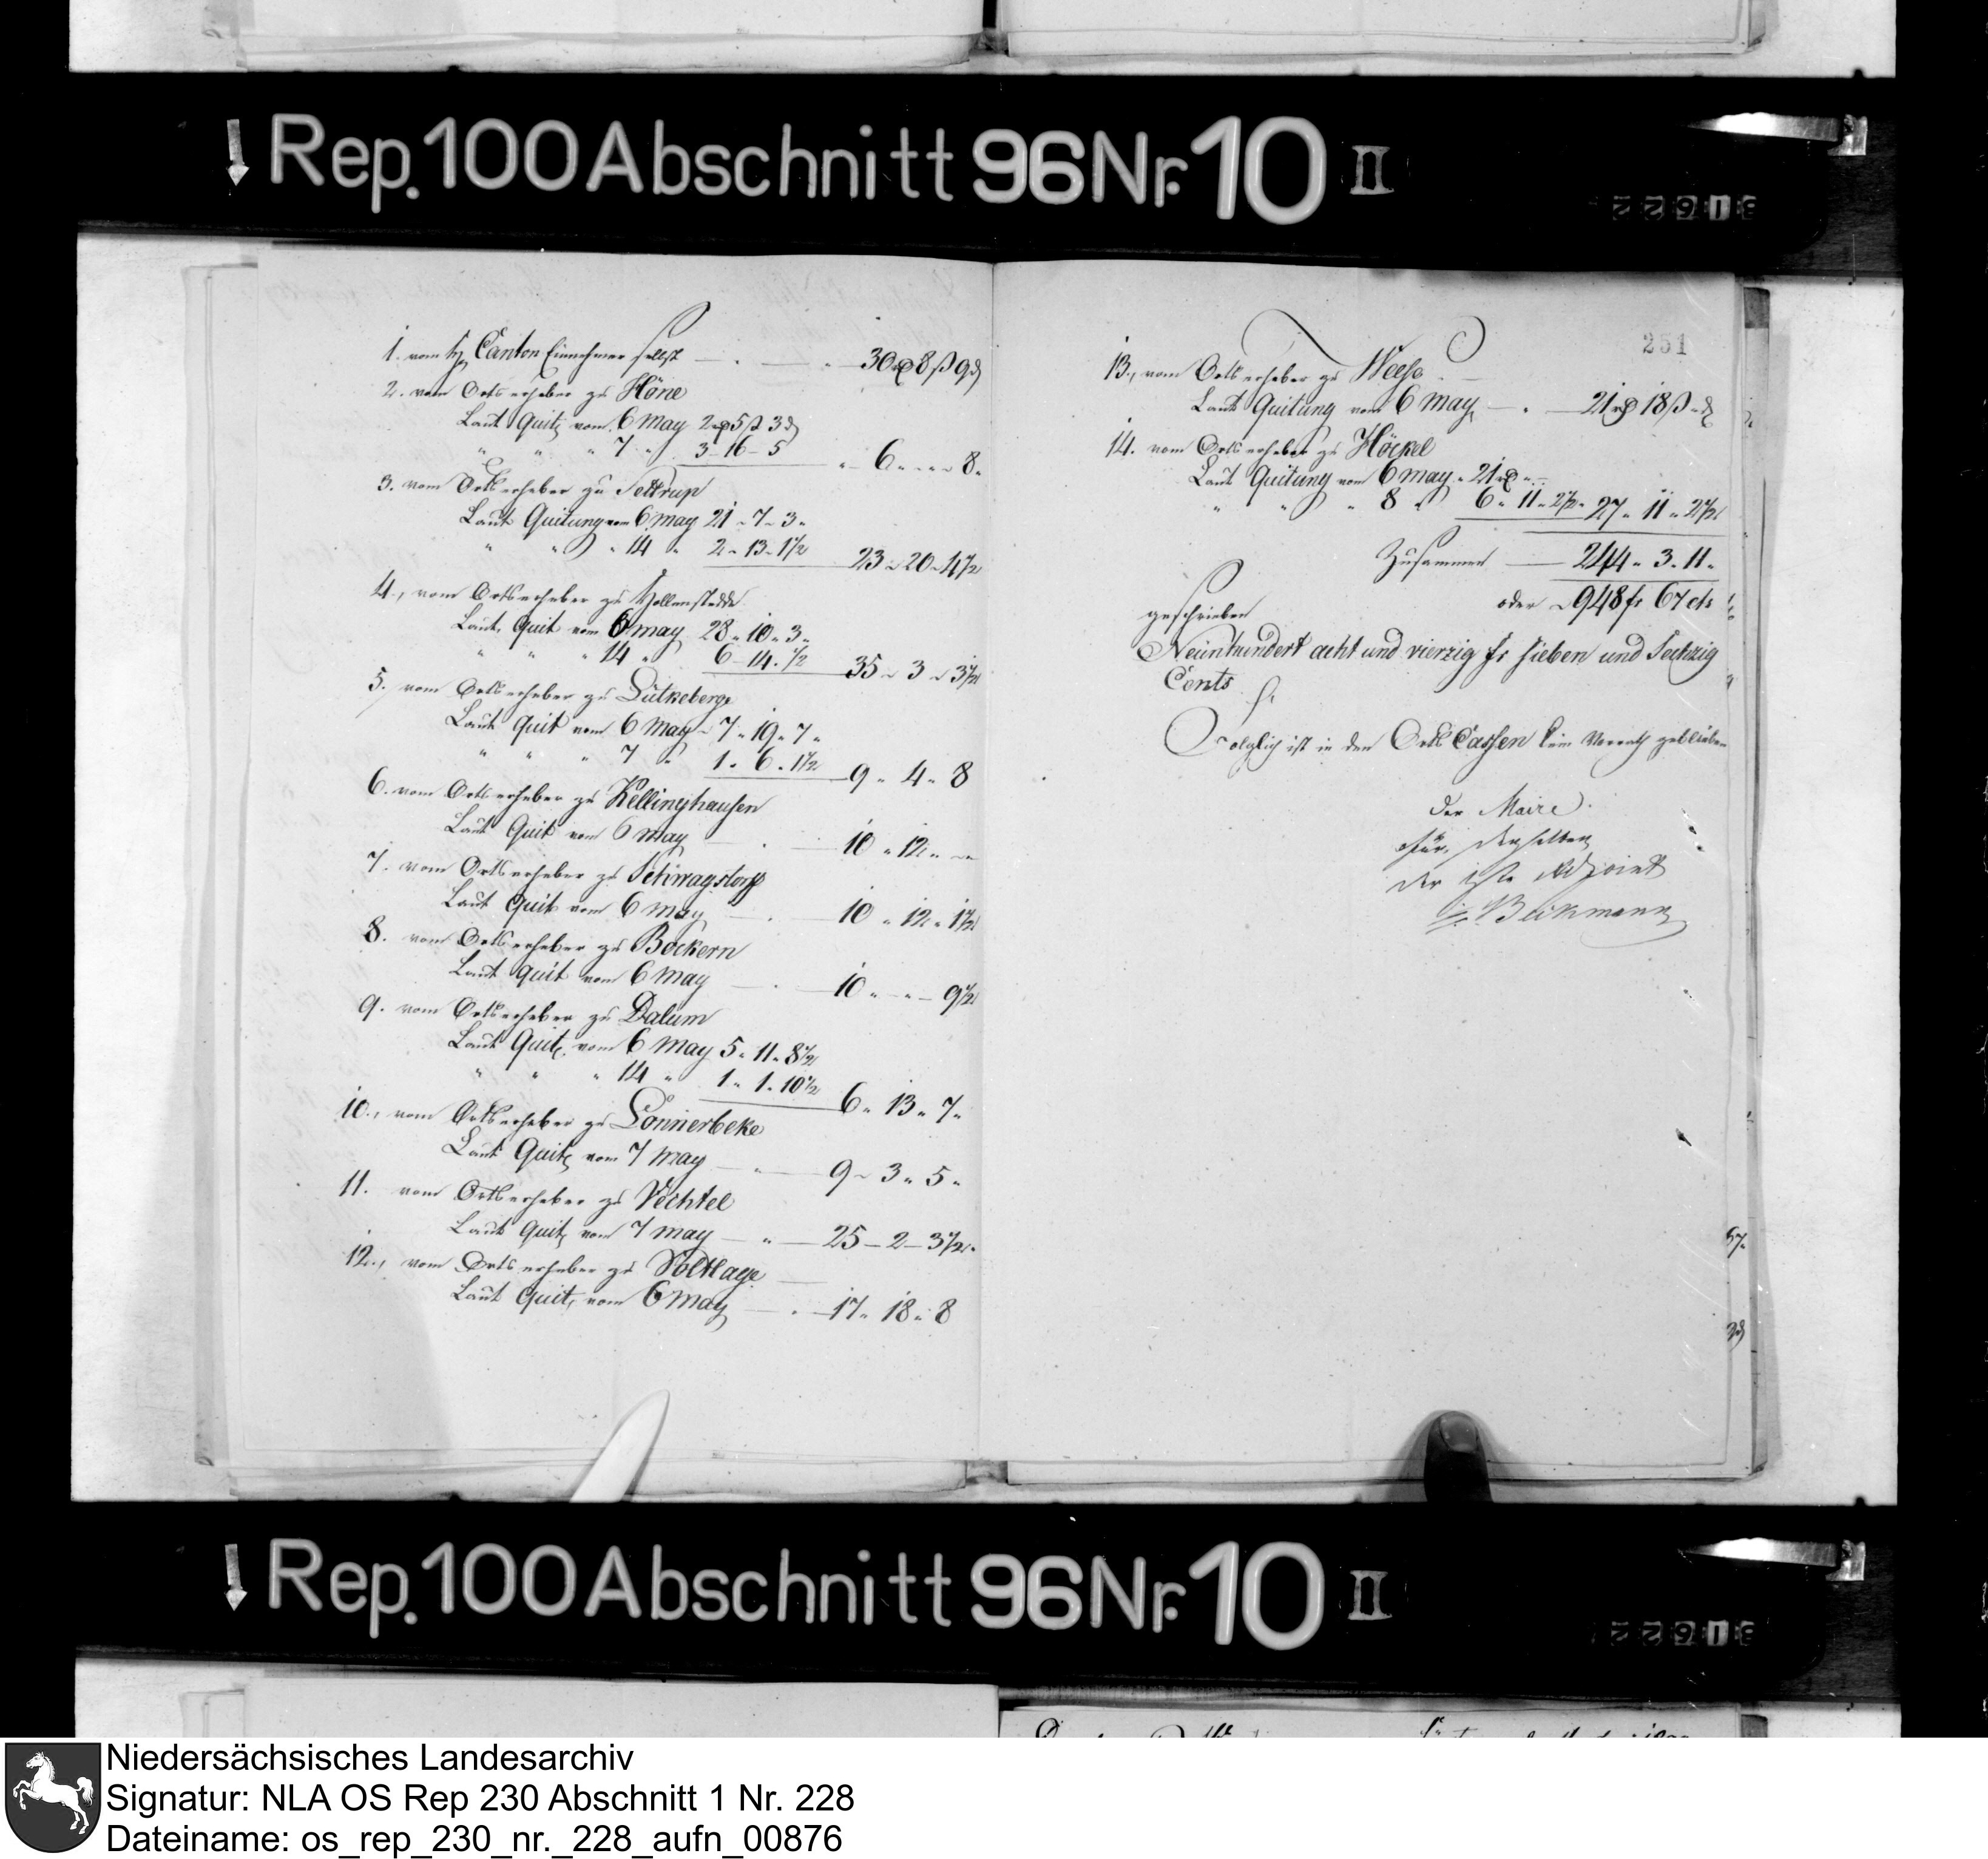 Rep. 100 Abschnitt 96 Nr. 10 II
1. vom H. Canton Einnehmer selbst — 30 rt 8 ß 9 d
2. vom Orts erheber zu Höne
Laut Quit. vom 6 May 2 rt 5 ß 3 d
" " " 7 " 3 - 16 - 5 " 6 " - " - 8 "
3. vom Ortserheber zu Settrup
Laut Quitung vom 6 May 21 " 7 " 3 "
" " " 14 " 2 " 13 " 1 1/2 23 " 20 " 4 1/2
4., vom Ortserheber zu Hollenstedde
Laut Quit vom 6 May 28 " 10 " 3 "
" " " 14 " 6 - 14 . 1/2 35 " 3 " 3 1/2
5. vom Ortserheber zu Lütkeberge
Laut Quit vom 6 May - 7 " 19 " 7 "
" " " 7 " 1 " 6 " 1 1/2 9 " 4 " 8
6. vom Ortserheber zu Kellinghausen
Laut Quit vom 6 May — 10 " 12 " -
7. vom Ortserheber zu Schwagstorff
Laut Quit vom 6 May — 10 " 12 " 1 1/2
8. vom Ortserheber zu Bockern
Laut Quit vom 6 May — 10 " - " - 9 1/2
9. vom Ortserheber zu Dalum
Laut Quit. vom 6 May 5 " 11 " 8 1/2
" " " 14 " 1 " 1 " 10 1/2 6 " 13 " 7 "
10., vom Ortserheber zu Lonnerbeke
Laut Quit. vom 7 May — 9 " 3 " 5 "
11. vom Ortserheber zu Vechtel
Laut Quit. vom 7 May — " — 25 - 2 - 3 1/2 "
12., vom Ortserheber zu Voltlage —
Laut Quit. vom 6 May — " — 17 " 18 " 8
251
13., vom Ortserheber zu Weese
Laut Quitung vom 6 May — " — 21 rt 18 ß " d
14. vom Ortserheber zu Höckel
Laut Quitung vom 6 May " 21 rt " -
" " " 8 " 6 " 11 " 2 1/2 " 27 " 11 " 2 1/2
Zusammen — 244 " 3 " 11 "
oder 948 fr 67 cts
geschrieben
Neunhundert acht und vierzig fr sieben und Sechzig
Cents
Folglich ist in den Orts Cassen kein Vorrath geblieben
Der Maire
für denselben
der 1ste Adjoint
Beckmann
Rep. 100 Abschnitt 96 Nr. 10 II
Niedersächsisches Landesarchiv
Signatur: NLA OS Rep 230 Abschnitt 1 Nr. 228
Dateiname: os_rep_230_nr._228_aufn_00876